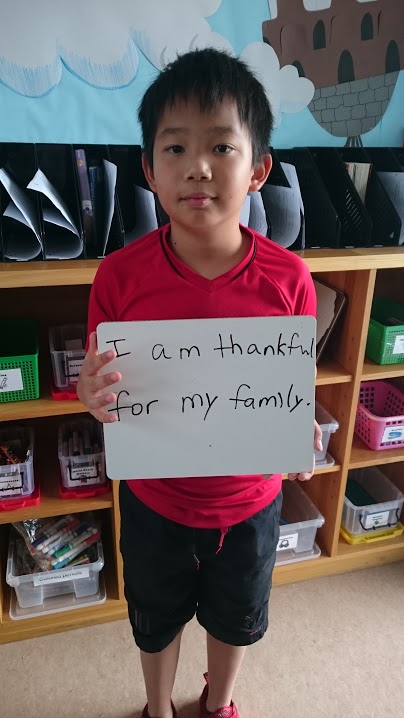 I am thankful
for my family.